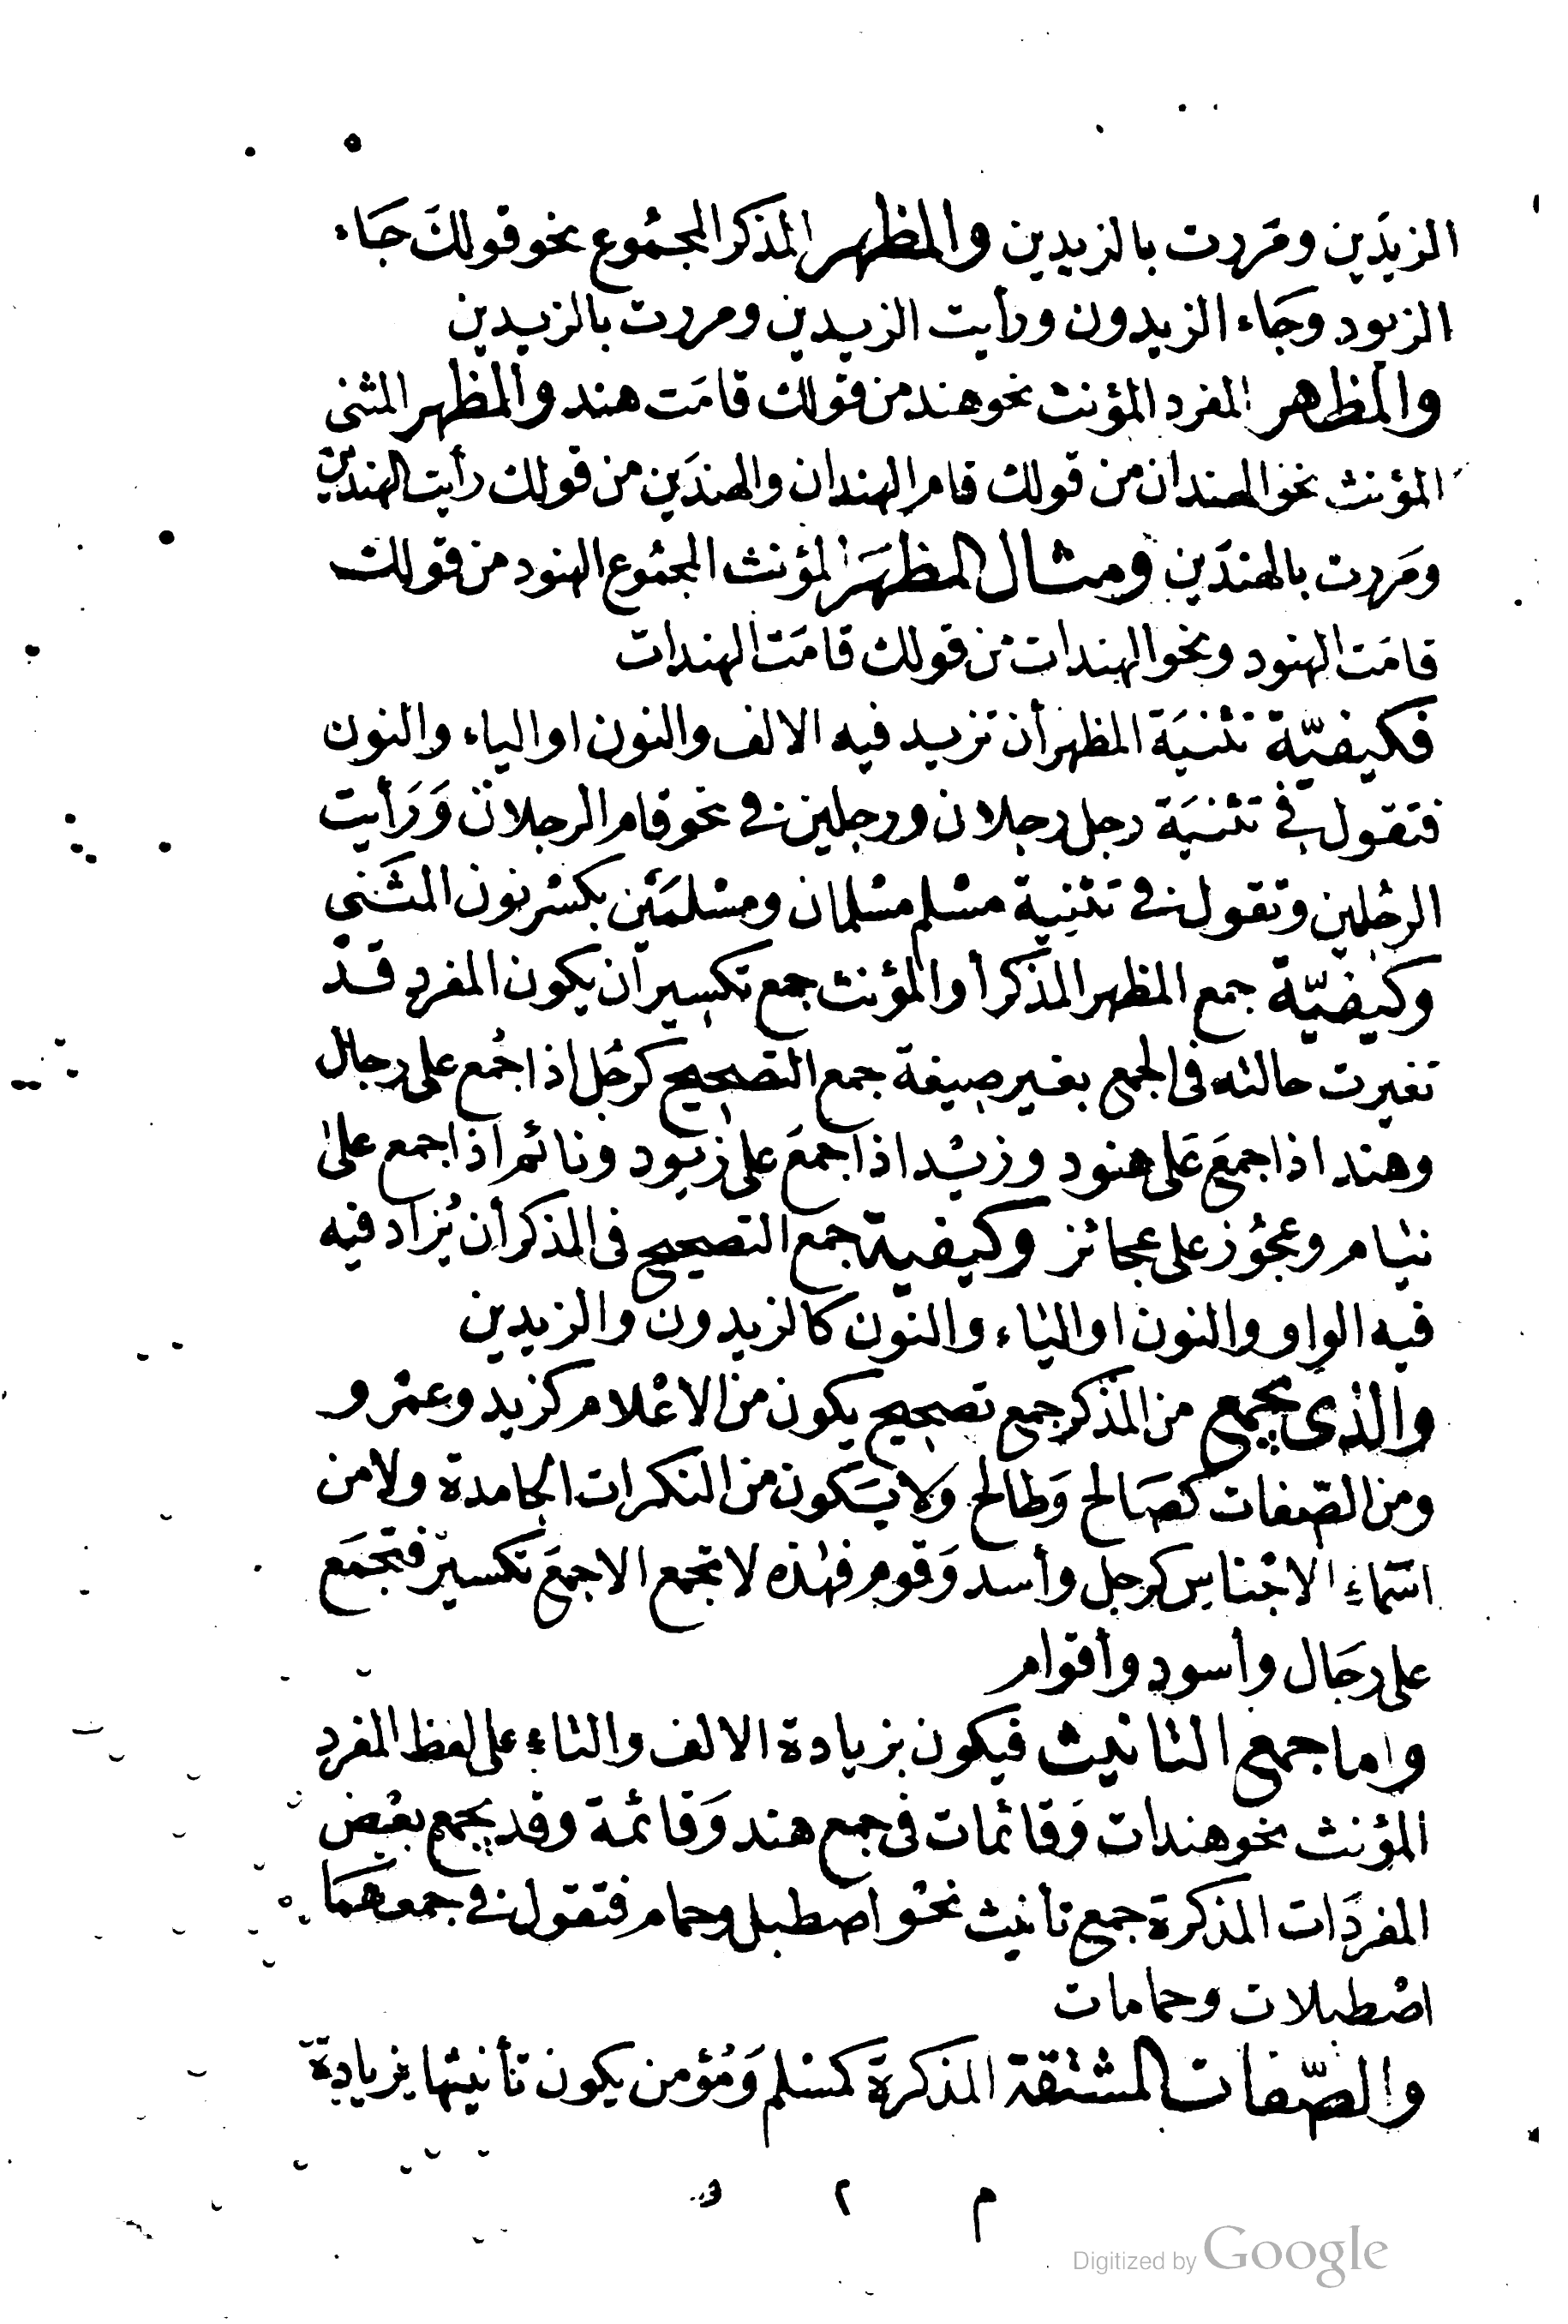 الزيدَين ومَررت بالزيدين والمظهر المذكر المجمُوع نحو قولكَ جَاء
الزيود وجَاء الزيدون ورأيت الزيدين ومررت بالزيدين
والمظهر المفرد المؤنث نحو هند من قولك قامَت هند والمظهر المثنى
المؤنث نحو الهندان من قولك قام الهندان والهندَين من قولك رأيت الهندين
ومَررت بالهندَين ومثال المظهَر المؤنث المجمُوع الهنود من قولك
قامَت الهنود ونحو الهندات من قولك قامَت الهندات
فكيفيّة تثنيَة المظهر أن تزيد فيه الالف والنون او الياء والنون
فتقول في تثنيَة رجل رجلان ورجلين في نحو قام الرجلان وَرَأيت
الرجُلين وتقول في تثنية مسْلم مسْلمان ومسْلمَيْن بكسْر نون المثَنى
وكيفيّة جمع المظهر المذكر أو المؤنث جمع تكسير أن يكون المفرد قد
تغيرت حالته فى الجمع بغير صيغة جمع التصحيح كرجُل اذا جُمع على رجال
وهند اذا جمعَ عَلى هنود وزيْد اذا جمعَ على زيود ونائم اذا جمع على
نيام وعجُوز على عجائز وكيفية جمع التصحيح فى المذكر أن يُزاد فيه
فيه الواو والنون او الياء والنون كالزيدون والزيدين
والذى يجمع من المذكر جمع تصحيح يكون من الاعْلام كزيد وعمْرو
ومن الصّفات كصَالح وَطالح ولا يَكون من النكرات الجامدة ولا من
اسَماءِ الاجْناس كرجل وأسد وَقوم فهٰذه لا تجمع الا جمعَ تكسير فتجمَع
على رجَال وأسود وأقوام
واما جمع التانيث فيكون بزيادة الالف والتاءِ على لفظ المفرد
المؤنث نحو هندات وَقائمات فى جمع هند وَقائمة وقد يجمع بعْض
المفردَات المذكرة جمع تأنيث نحْو اصطبل وحمام فتقول في جمعهمَا
اصْطبلات وحمامات
والصّفات المشتقة المذكرة كمسْلم وَمُؤمن يكون تأنيثها بزيادة
م ٢ و
Digitized by Google